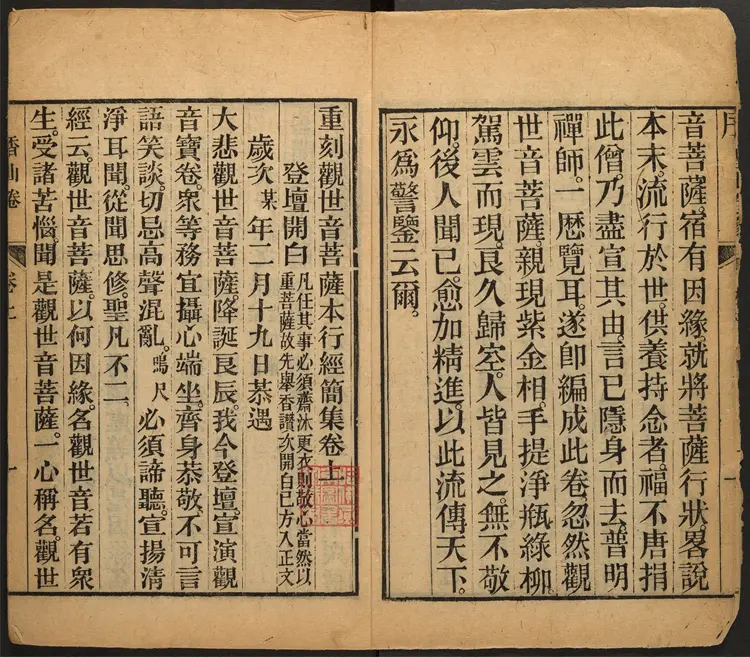 序
音菩薩。宿有因緣。就將菩薩行狀。畧說
本末。流行於世。供養持念者。福不唐捐
此僧。乃盡宣其由。言已隱身而去。普明
禪師。一歷覽耳。遂卽編成此卷。忽然觀
世音菩薩。親現紫金相。手提淨瓶綠柳。
駕雲而現。良久歸空。人皆見之。無不敬
仰。後人聞已。愈加精進。以此流傳天下。
永爲警鑒云爾。
一
重刻觀世音菩薩本行經簡集卷上
登壇開白 凡任其事必須齋沐更衣則敬心當然以
重菩薩故先舉香讚次開白已方入正文
歲次某年二月十九日恭遇
大悲觀世音菩薩。降誕良辰。我今登壇。宣演觀
音寶卷。衆等務宜攝心端坐。齊身恭敬。不可言
語笑談。切忌高聲混亂。鳴尺 必須諦聽。宣揚清
淨耳聞。從聞思修。聖凡不二。
經云。觀世音菩薩。以何因緣。名觀世音若有衆
生。受諸苦惱。聞是觀世音菩薩。一心稱名。觀世
香山卷 卷上 一